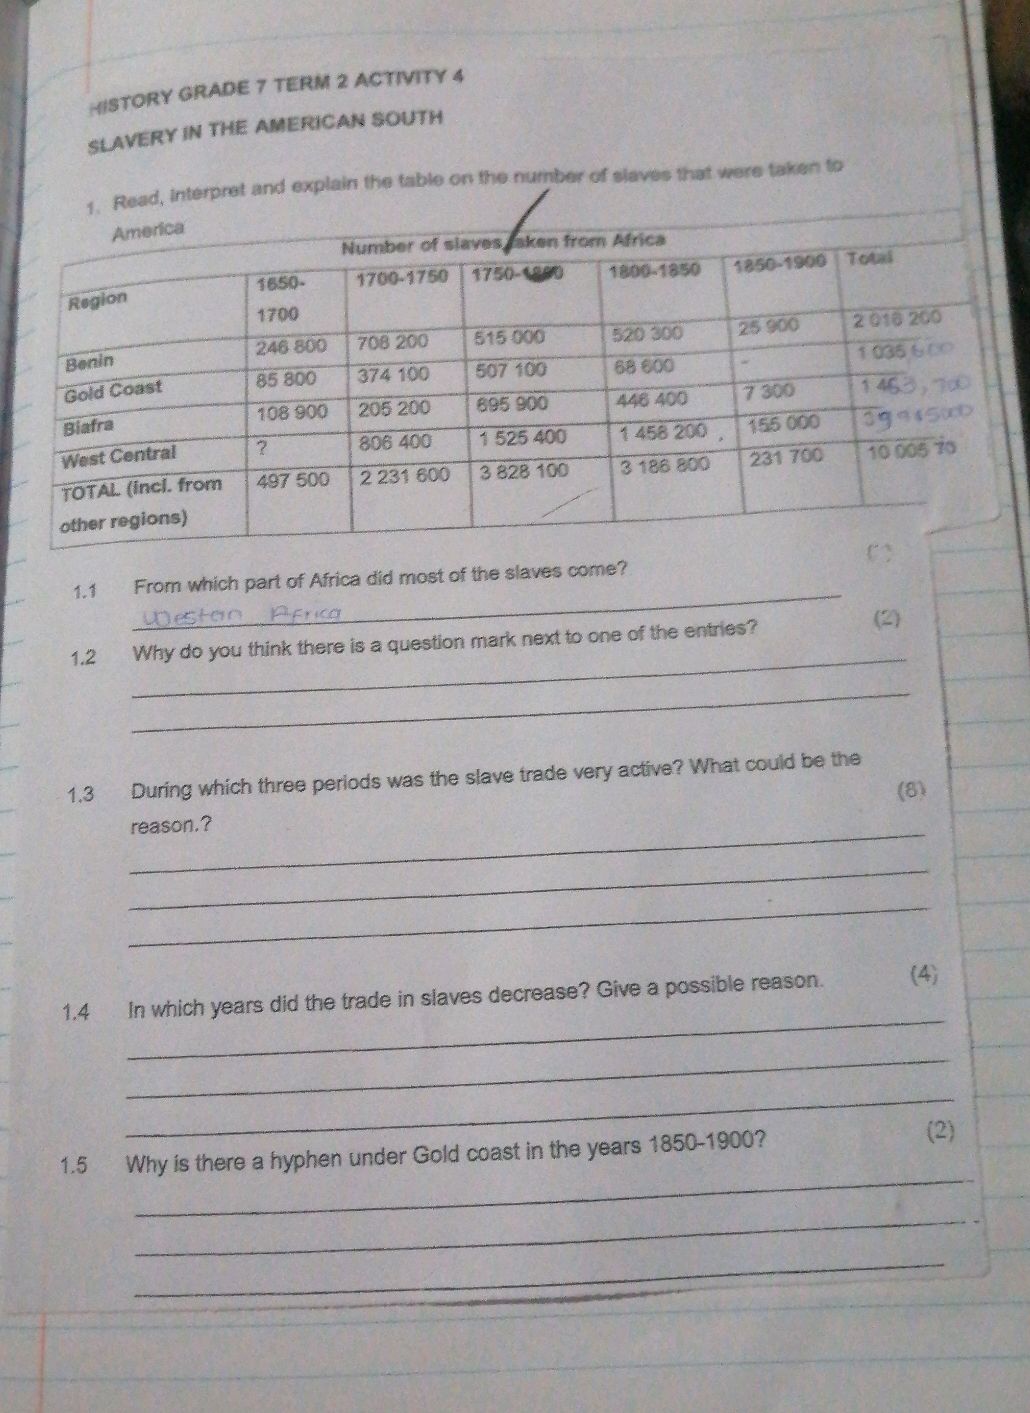 HISTORY GRADE 7 TERM 2 ACTIVITY 4
SLAVERY IN THE AMERICAN SOUTH
1. Read, interpret and explain the table on the number of slaves that were taken to
America
Number of slaves taken from Africa
Region 1650-1700 1700-1750 1750- 1800-1850 1850-1900 Total
Benin 246 800 708 200 515 000 520 300 25 900 2 016 200
Gold Coast 85 800 374 100 507 100 68 600 - 1 035 600
Biafra 108 900 205 200 695 900 446 400 7 300 1 463,700
West Central ? 806 400 1 525 400 1 458 200 155 000
TOTAL (incl. from other regions) 497 500 2 231 600 3 828 100 3 186 800 231 700 10 005 70
1.1 From which part of Africa did most of the slaves come?
Western Africa
1.2 Why do you think there is a question mark next to one of the entries? (2)
1.3 During which three periods was the slave trade very active? What could be the
reason.? (8)
1.4 In which years did the trade in slaves decrease? Give a possible reason. (4)
1.5 Why is there a hyphen under Gold coast in the years 1850-1900? (2)